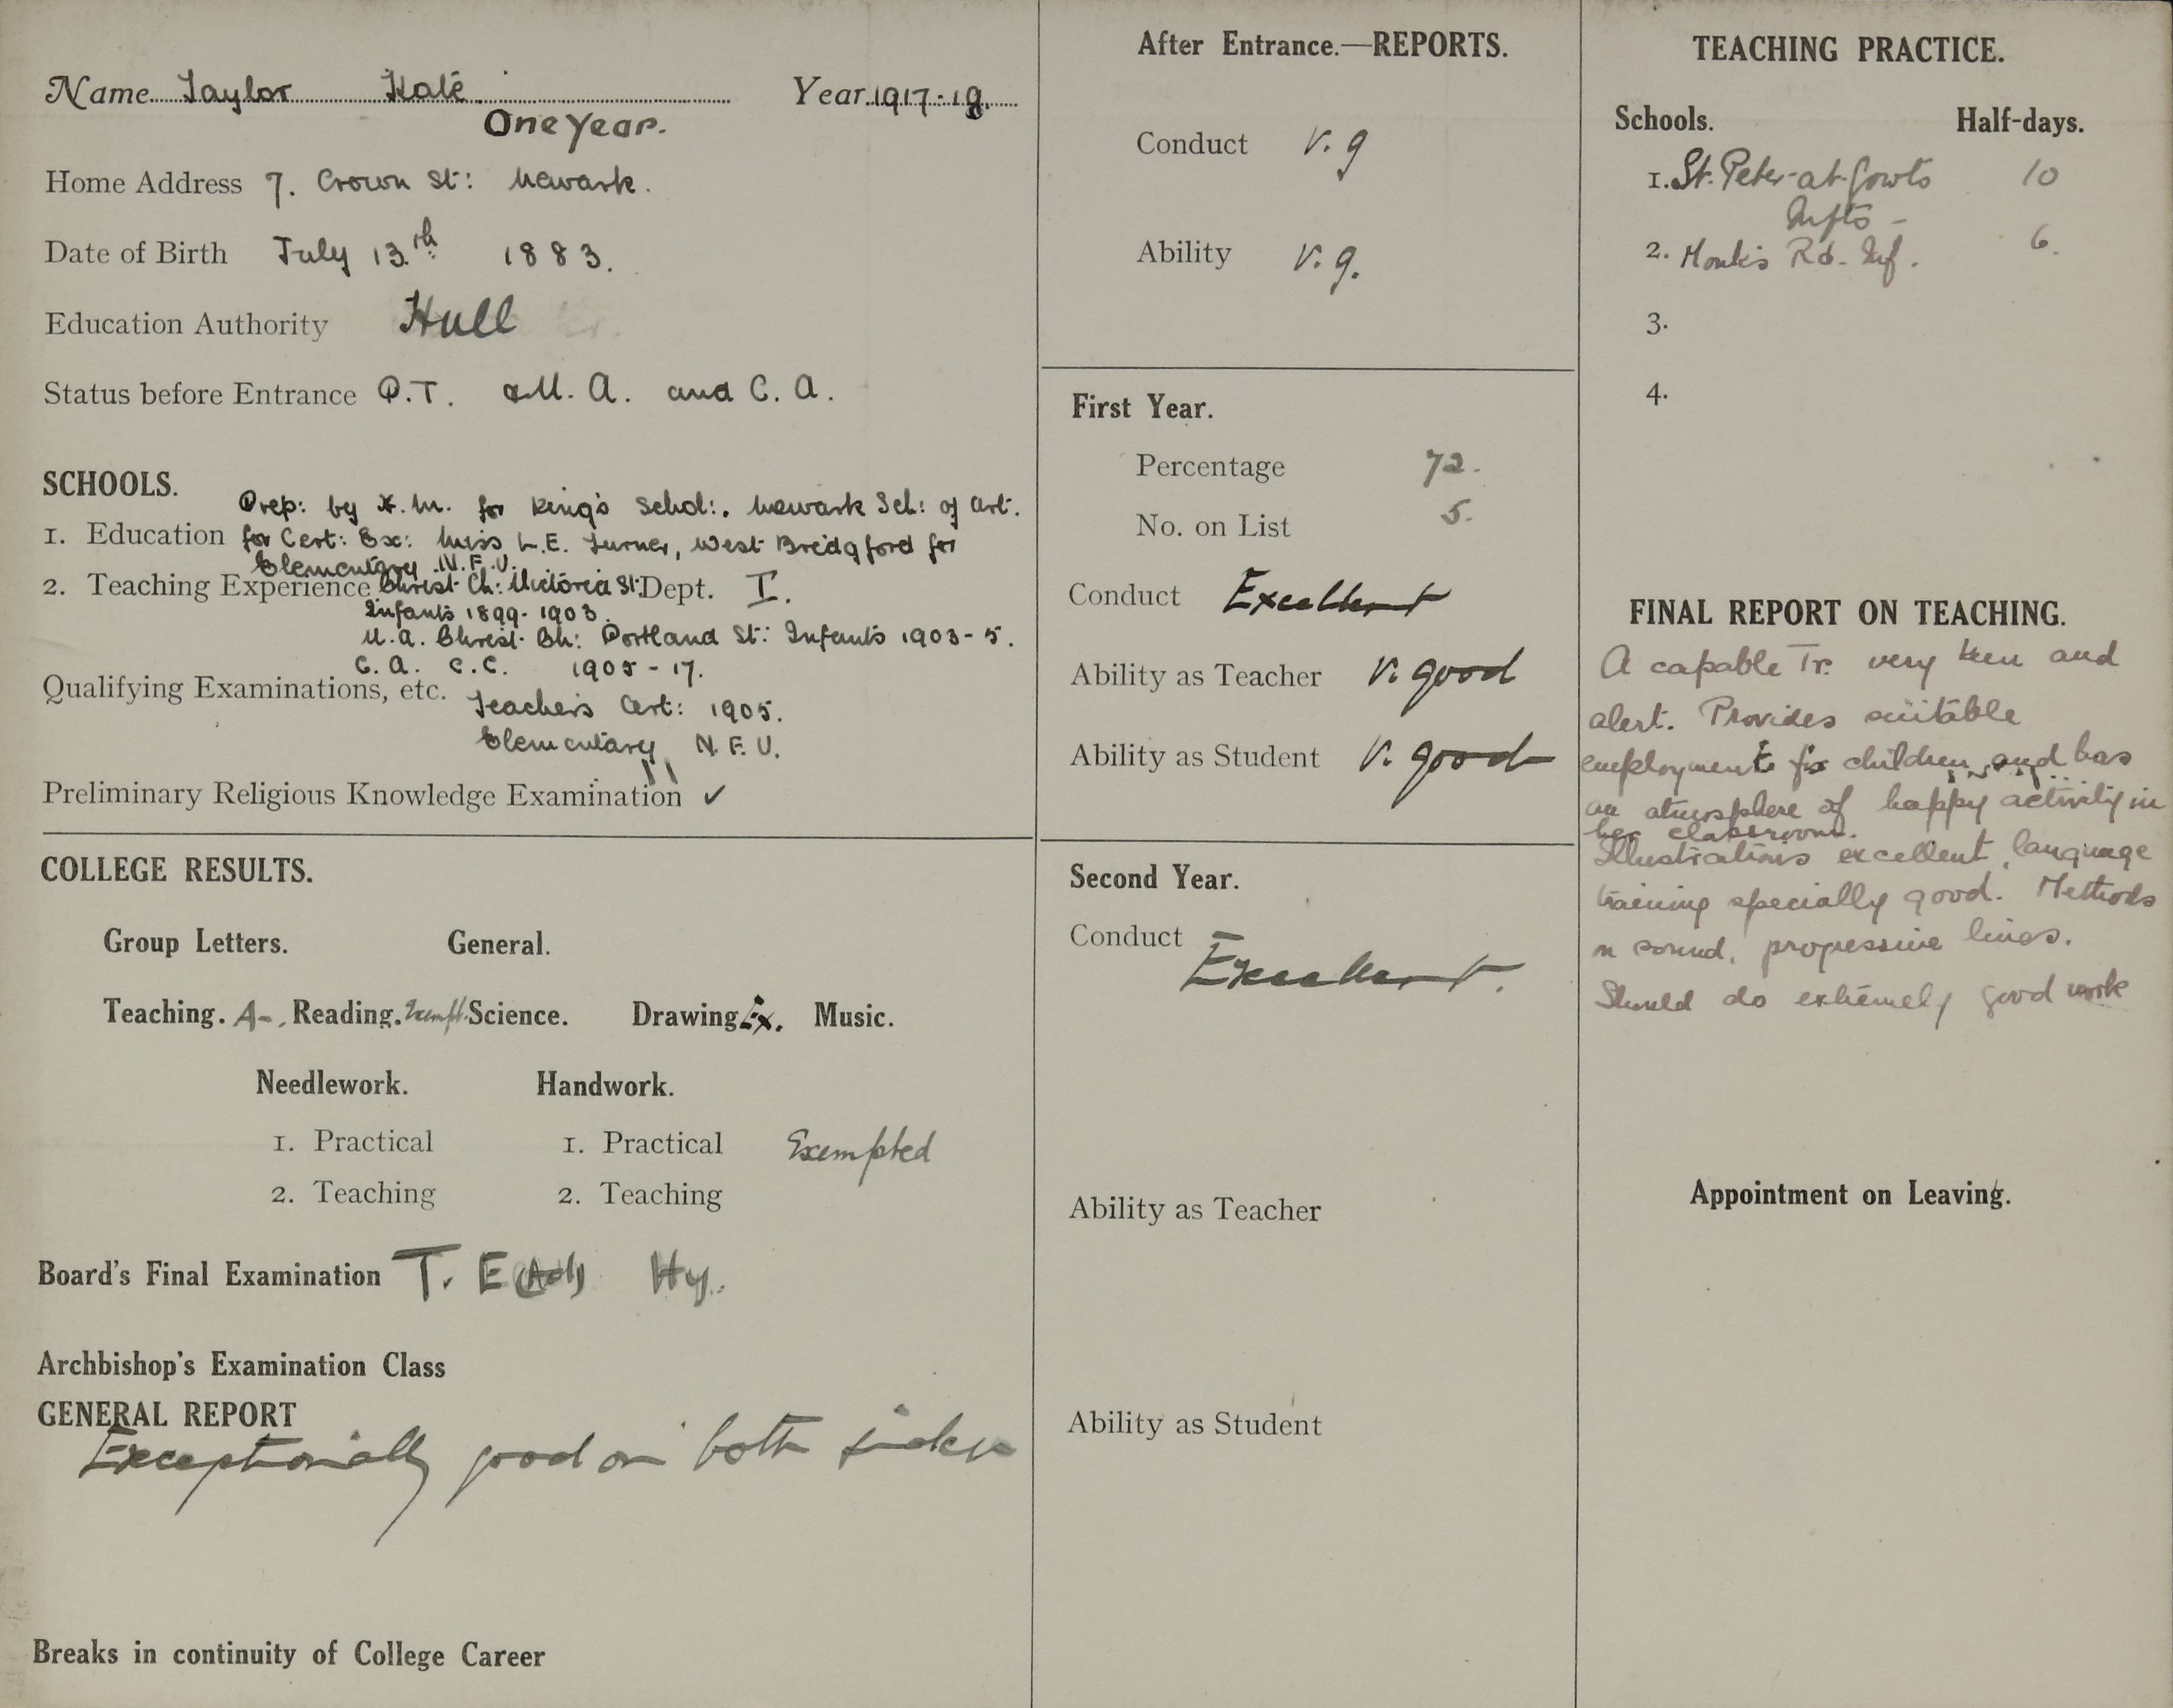 Name Taylor Kate Year 1917-18.
One Year.
Home Address 7. Crown St: Newark.
Date of Birth July 13th 1883.
Education Authority Hull
Status before Entrance P.T. U. A. and C. A.
SCHOOLS.
Prep: by H.M. for King's Schol:. Newark Sch: of Art.
1. Education for Cert: Ex: Miss L.E. Turner, West Bridgford for
Elementary N.F.U.
2. Teaching Experience Christ Ch: Victoria St: Dept. I.
Infants 1899-1903.
U.A. Christ Ch: Portland St: Infants 1903-5.
C. A. C.C. 1905-17.
Qualifying Examinations, etc. Teacher's Cert: 1905.
Elementary N.F.U.
Preliminary Religious Knowledge Examination ✓
COLLEGE RESULTS.
Group Letters. General.
Teaching. A-. Reading. Exempt. Science. Drawing Ex. Music.
Needlework. Handwork.
1. Practical 1. Practical Exempted
2. Teaching 2. Teaching
Board's Final Examination T. E Hy.
Archbishop's Examination Class
GENERAL REPORT
Exceptionally good on both sides
Breaks in continuity of College Career
After Entrance.—REPORTS.
Conduct v. g
Ability v. g.
First Year.
Percentage 72.
No. on List 5.
Conduct Excellent
Ability as Teacher v. good
Ability as Student v. good
Second Year.
Conduct Excellent.
Ability as Teacher
Ability as Student
TEACHING PRACTICE.
Schools. Half-days.
1. St. Peter-at-Gowts 10
Infts -
2. Monks Rd. Inf. 6.
3.
4.
FINAL REPORT ON TEACHING.
A capable Tr. very keen and
alert. Provides suitable
employment for children, and has
an atmosphere of happy activity in
her classroom.
Illustrations excellent, language
training specially good. Methods
on sound, progressive lines.
Should do extremely good work
Appointment on Leaving.